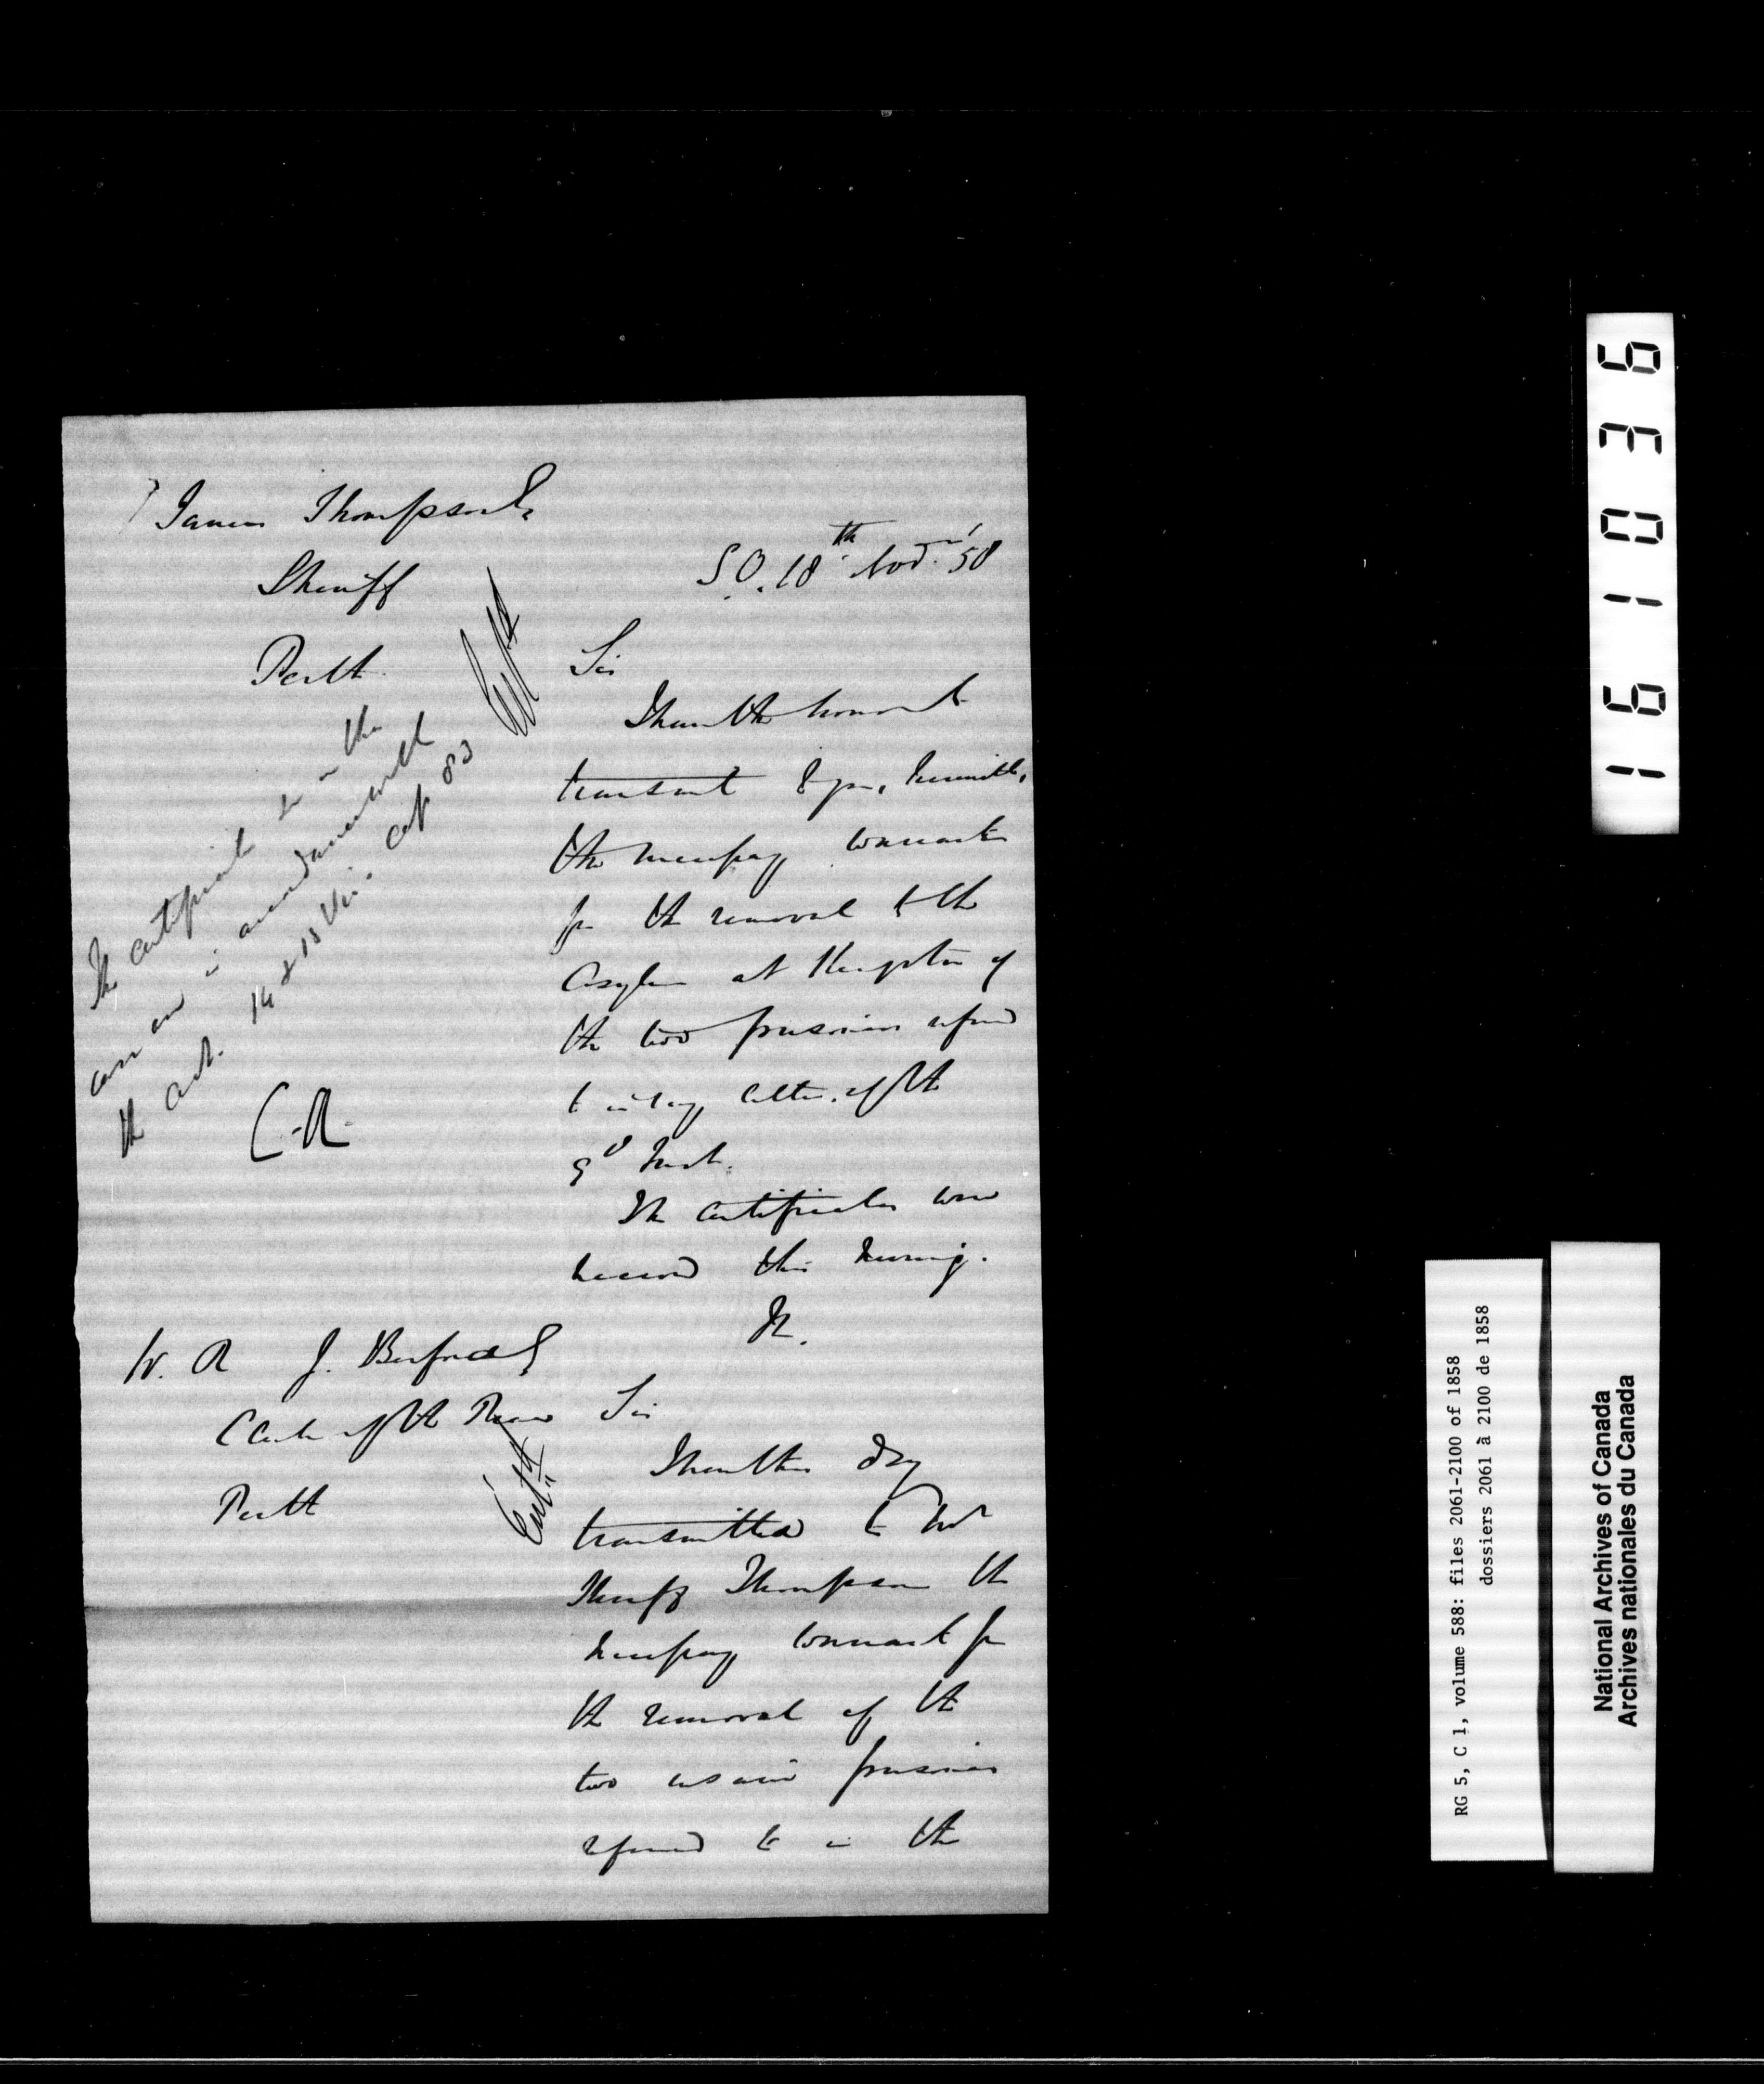 James Thompson Es
Sheriff
Perth
S.O. 18th Nov. '58
Sir
I have the honor to
transmit to you, herewith,
the necessary warrants
for the removal to the
Asylum at Kingston of
the two prisoners referred
to in your letter of the
9th Inst.
The certificates were
received this morning.
The certificate in the
case are in accordance with
the act. 14 & 15 Vic. cap 83
C.A.
Ent d
W. R J. Berford Es
Clerk of the Peace
Perth
Ent d
Sir
I have this day
transmitted to Mr
Sheriff Thompson the
necessary warrant for
the removal of the
two insane prisoners
referred to in the
161036
RG 5, C 1, volume 588: files 2061-2100 of 1858
dossiers 2061 à 2100 de 1858
National Archives of Canada
Archives nationales du Canada